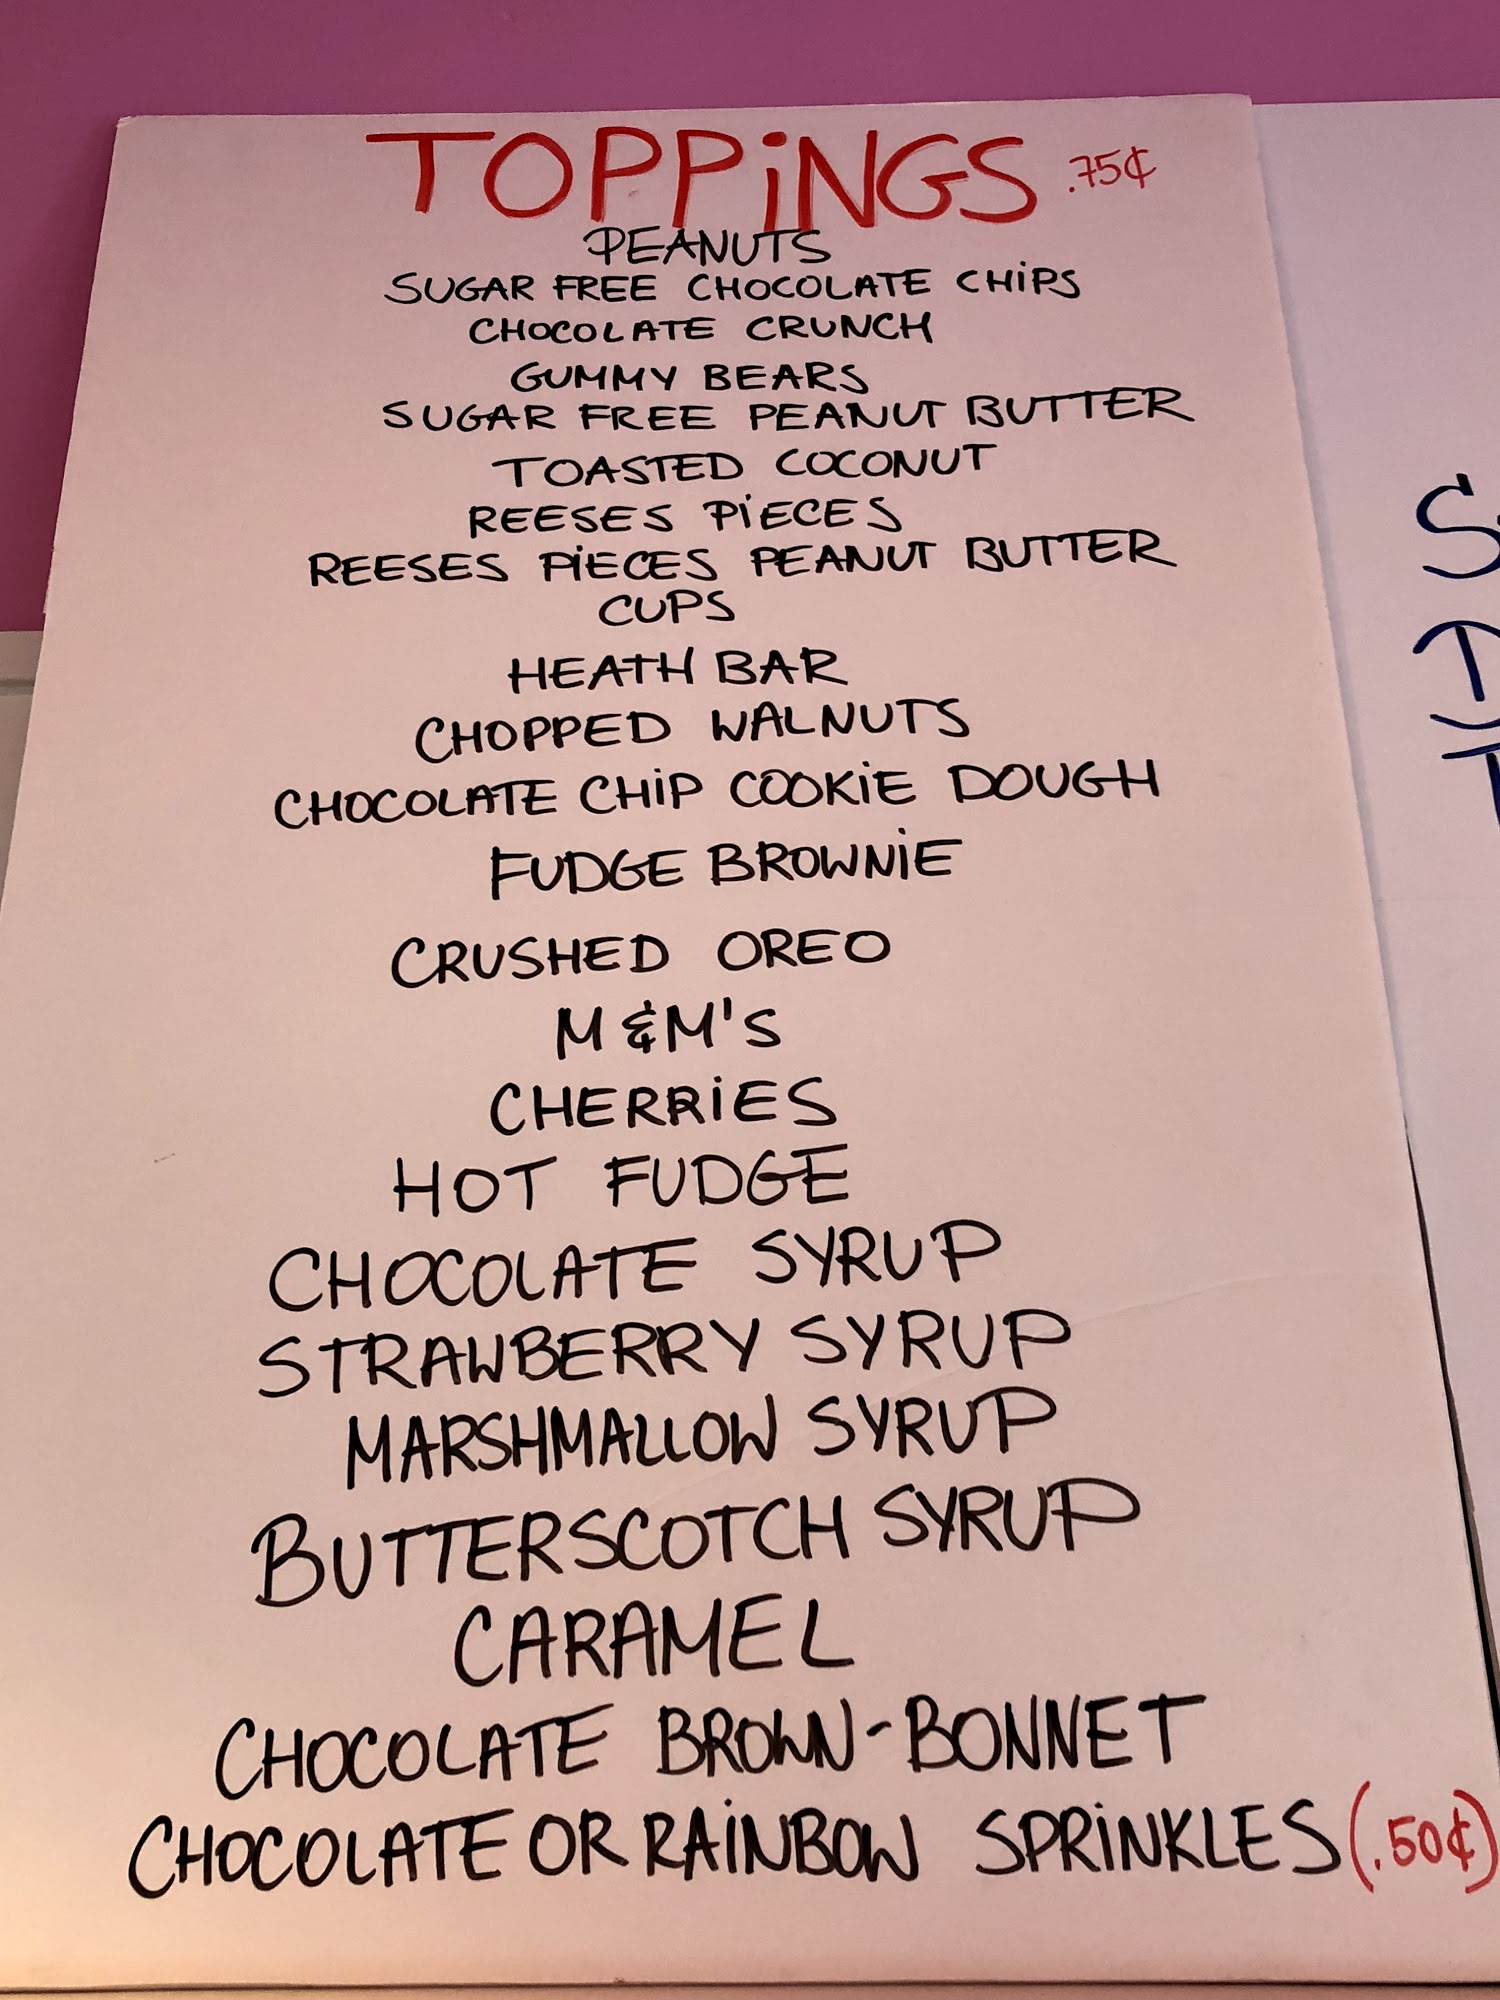 TOPPiNGS .75¢
PEANUTS
SUGAR FREE CHOCOLATE CHiPS
CHOCOLATE CRUNCH
GUMMY BEARS
SUGAR FREE PEANUT BUTTER
TOASTED COCONUT
REESES PiECES
REESES PiECES PEANUT BUTTER
CUPS
HEATH BAR
CHOPPED WALNUTS
CHOCOLATE CHiP COOKiE DOUGH
FUDGE BROWNiE
CRUSHED OREO
M &M'S
CHERRiES
HOT FUDGE
CHOCOLATE SYRUP
STRAWBERRY SYRUP
MARSHMALLOW SYRUP
BUTTERSCOTCH SYRUP
CARAMEL
CHOCOLATE BROWN-BONNET
CHOCOLATE OR RAiNBOW SPRiNKLES (.50¢)